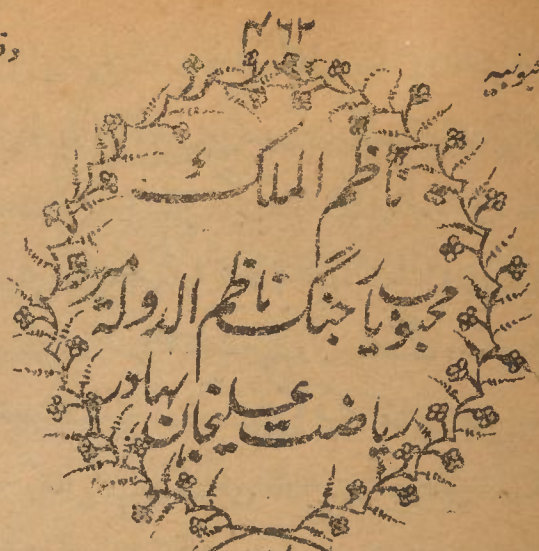 ۴۶۲
ناظم الملک
محبوب یار جنگ ناظم الدولہ میر
ریاضت علیخان بہادر